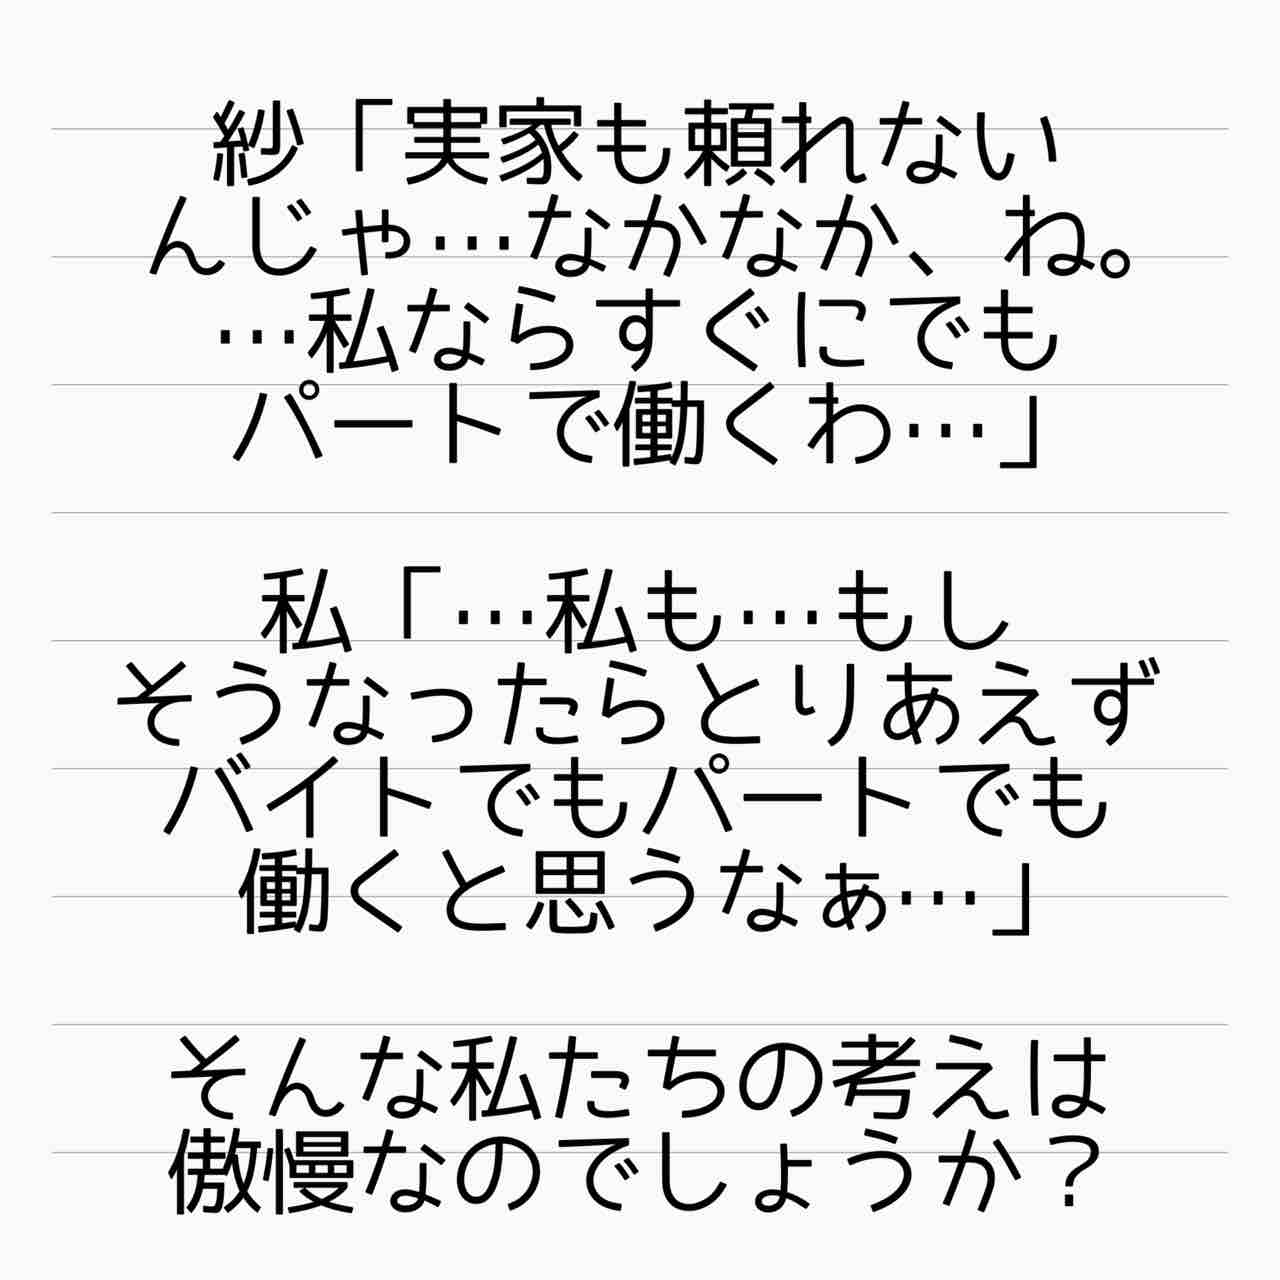 紗「実家も頼れない
んじゃ…なかなか、ね。
…私ならすぐにでも
パートで働くわ…」
私「…私も…もし
そうなったらとりあえず
バイトでもパートでも
働くと思うなぁ…」
そんな私たちの考えは
傲慢なのでしょうか？